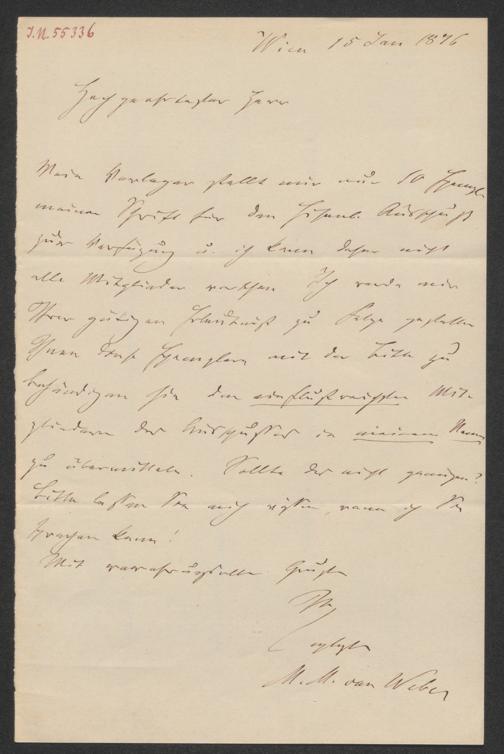 I.N. 55336
Wien 15 Jan 1876
Hochgeehrtester Herr
Mein Verleger stellt mir nur 50 Exempl
meiner Schrift für den Eisenb. Ausschuß
zur Verfügung u. ich kann daher nicht
alle Mitglieder versehen. Ich werde mir
Ihrer gütigen Erlaubniß zu Folge gestatten
Ihnen Exemplare mit der Bitte zu
behändigen sie den einflußreichsten Mit-
gliedern des Ausschusses in meinem Namen
zu übermitteln. Sollte das nicht genügen?
Bitte lassen Sie mich wissen, wann ich Sie
sprechen kann!
Mit verehrungsvollen Grüßen
Ihr
M. M. von Weber